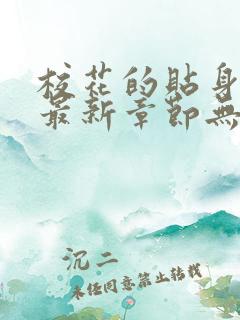 校花的贴身
最新章节无
沉二
未经同意禁止转载